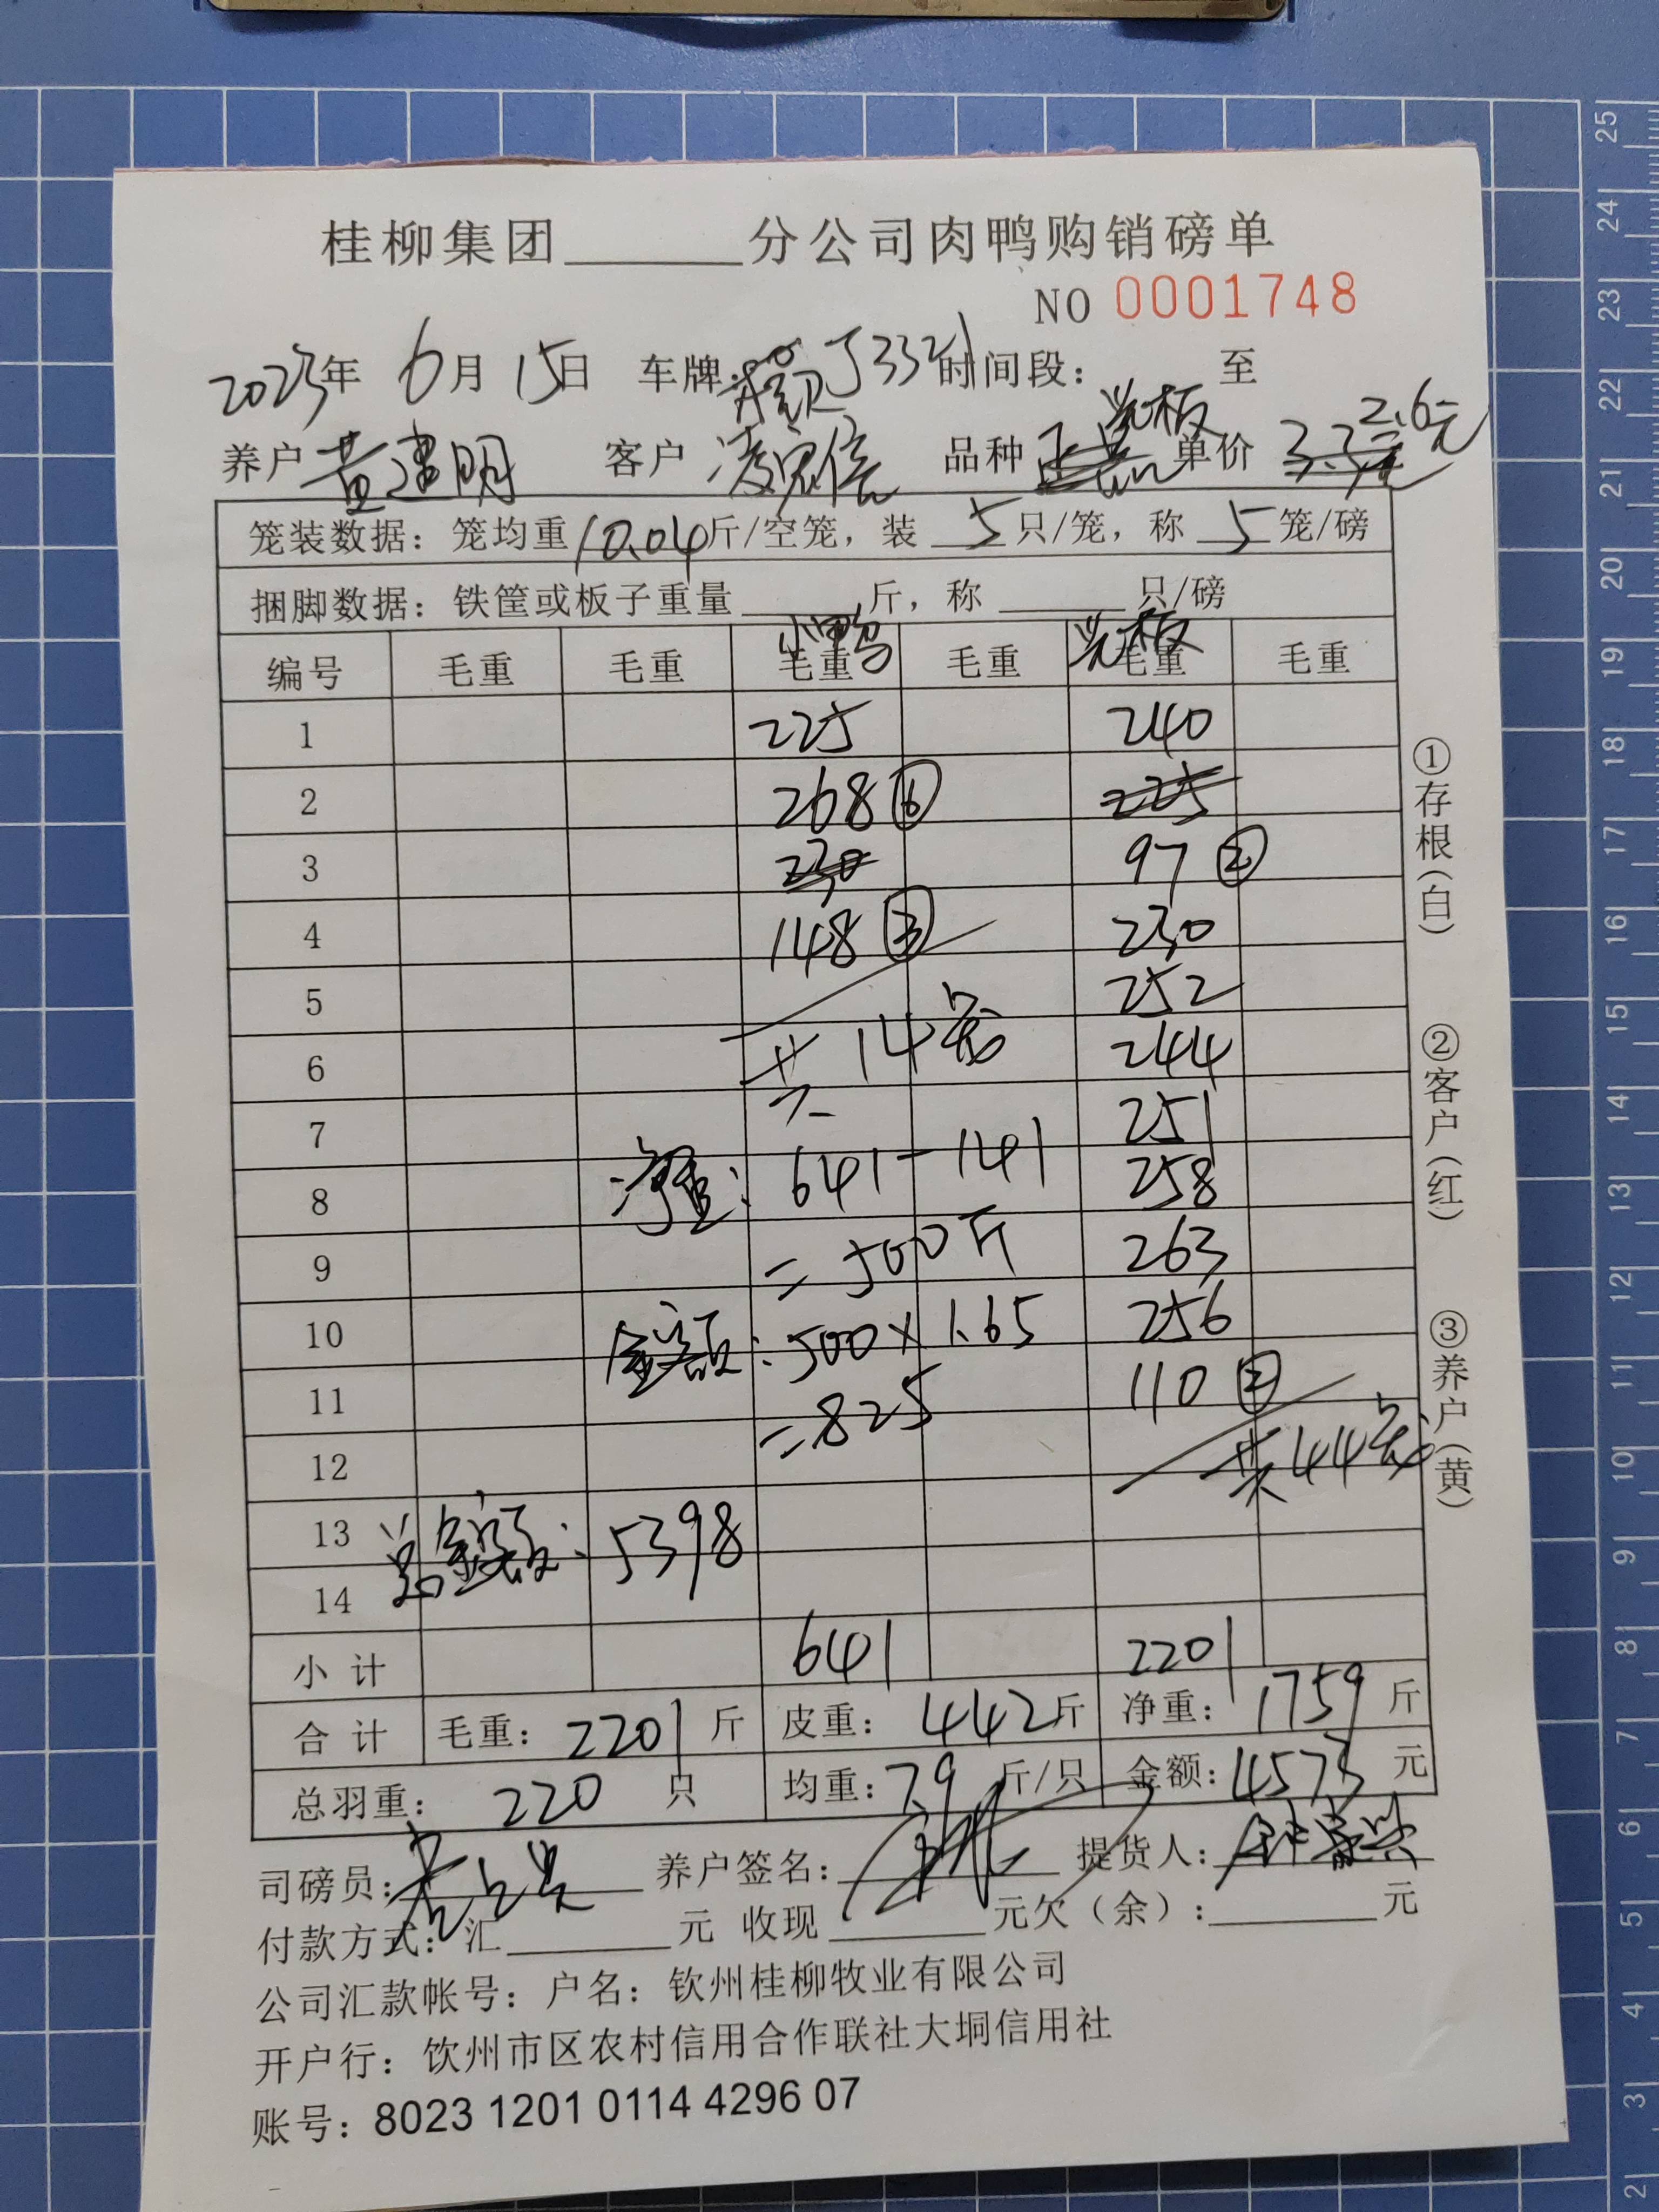 桂柳集团______分公司肉鸭购销磅单
NO 0001748
2023年 6月15日 车牌: J3321 时间段: 至
光板 2.6元
养户 黄建明 客户 凌宗信 品种 单价 3.3元
笼装数据：笼均重10.04斤/空笼，装 5 只/笼，称 5 笼/磅
捆脚数据：铁筐或板子重量______斤，称______只/磅
小鸭 光板
编号 毛重 毛重 毛重 毛重 毛重 毛重
1 225 240
2 268⑥ 225
3 230 97②
4 148③ 230
5 252
6 共14笼 244
7 251
8 净重: 641-141 258
9 =500斤 263
10 金额:500×1.65 256
11 =825 110②
12 共44笼
13 总金额: 5398
14
小计 641 2201
合计 毛重：2201斤 皮重：442斤 净重：1759斤
总羽重：220 只 均重：7.9斤/只 金额：4573元
司磅员: 养户签名: 提货人:
付款方式：汇______元 收现______元欠（余）:______元
公司汇款帐号：户名：钦州桂柳牧业有限公司
开户行：饮州市区农村信用合作联社大垌信用社
账号：8023 1201 0114 4296 07
①存根(白)
②客户(红)
③养户(黄)
25
24
23
22
21
20
19
18
17
16
15
14
13
12
11
10
9
8
7
6
5
4
3
2